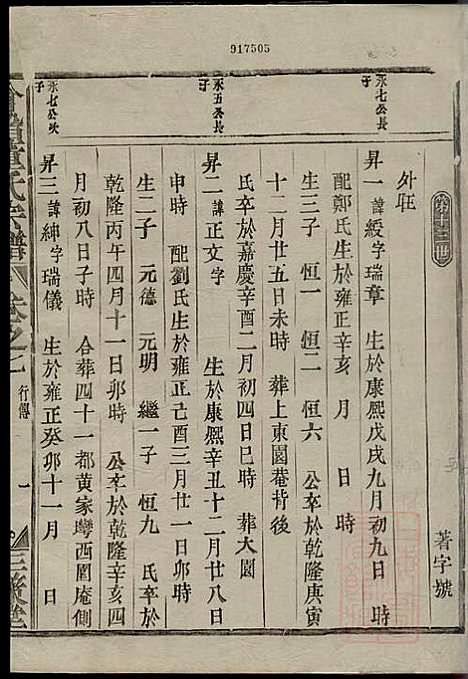 917505
著字號
外莊
永七公長子
昇一諱綬字瑞章 生於康熙戊戌九月初九日 時
配鄭氏生於雍正辛亥 月 日 時
生三子 恒一 恒二 恒六 公卒於乾隆庚寅
十二月廿五日未時 葬上東園菴背後
氏卒於嘉慶辛酉二月初四日巳時 葬大園
永五公長子
昇二諱正文字 生於康熙辛丑十二月廿八日
申時 配劉氏生於雍正己酉三月廿一日卯時
生二子 元德 元明 繼一子 恒九 氏卒於
乾隆丙午四月十一日卯時 公卒於乾隆辛亥四
月初八日子時 合葬四十一都黃家灣西園庵側
永七公次子
昇三諱紳字瑞儀 生於雍正癸卯十一月 日
氏宗譜
卷之七
行傳
一